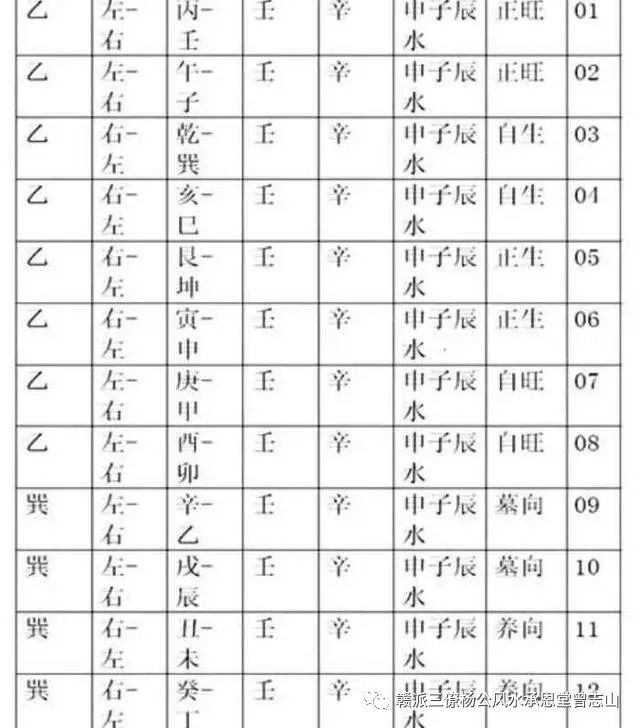 乙 左- 丙- 壬 辛 申子辰 正旺 01
右 壬 水
乙 左- 午- 壬 辛 申子辰 正旺 02
右 子 水
乙 右- 乾- 壬 辛 申子辰 自生 03
左 巽 水
乙 右- 亥- 壬 辛 申子辰 自生 04
左 巳 水
乙 右- 艮- 壬 辛 申子辰 正生 05
左 坤 水
乙 右- 寅- 壬 辛 申子辰 正生 06
左 申 水
乙 左- 庚- 壬 辛 申子辰 自旺 07
右 甲 水
乙 左- 酉- 壬 辛 申子辰 自旺 08
右 卯 水
巽 左- 辛- 壬 辛 申子辰 墓向 09
右 乙 水
巽 左- 戌- 壬 辛 申子辰 墓向 10
右 辰 水
巽 右- 丑- 壬 辛 申子辰 养向 11
左 未 水
巽 右- 癸- 壬 辛 申子辰 养向 12
左 丁 水
赣派三僚杨公风水承恩堂曾志山